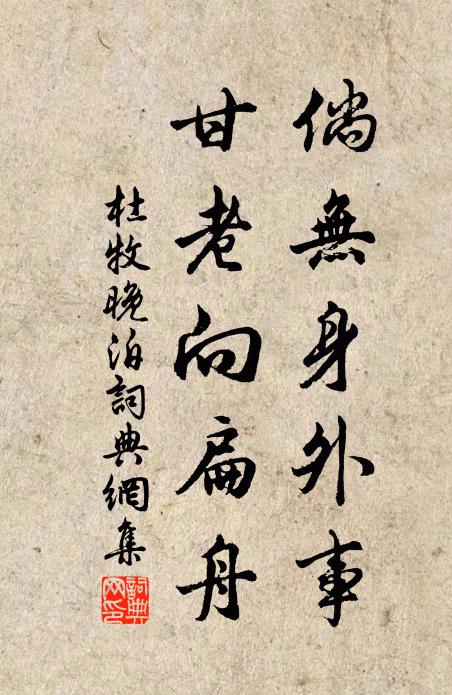 倘無身外事
甘老向扁舟
杜牧晚泊詞典網集
詞典網印